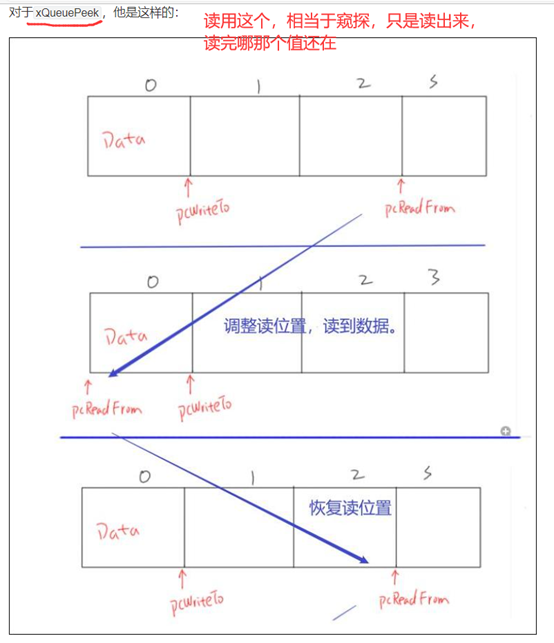 对于 xQueuePeek，他是这样的：
读用这个，相当于窥探，只是读出来，
读完哪那个值还在
0 1 2 3
Data
pcWriteTo pcReadFrom
0 1 2 3
Data 调整读位置，读到数据。
pcReadFrom pcWriteTo
0 1 2 3
Data 恢复读位置
pcWriteTo pcReadFrom